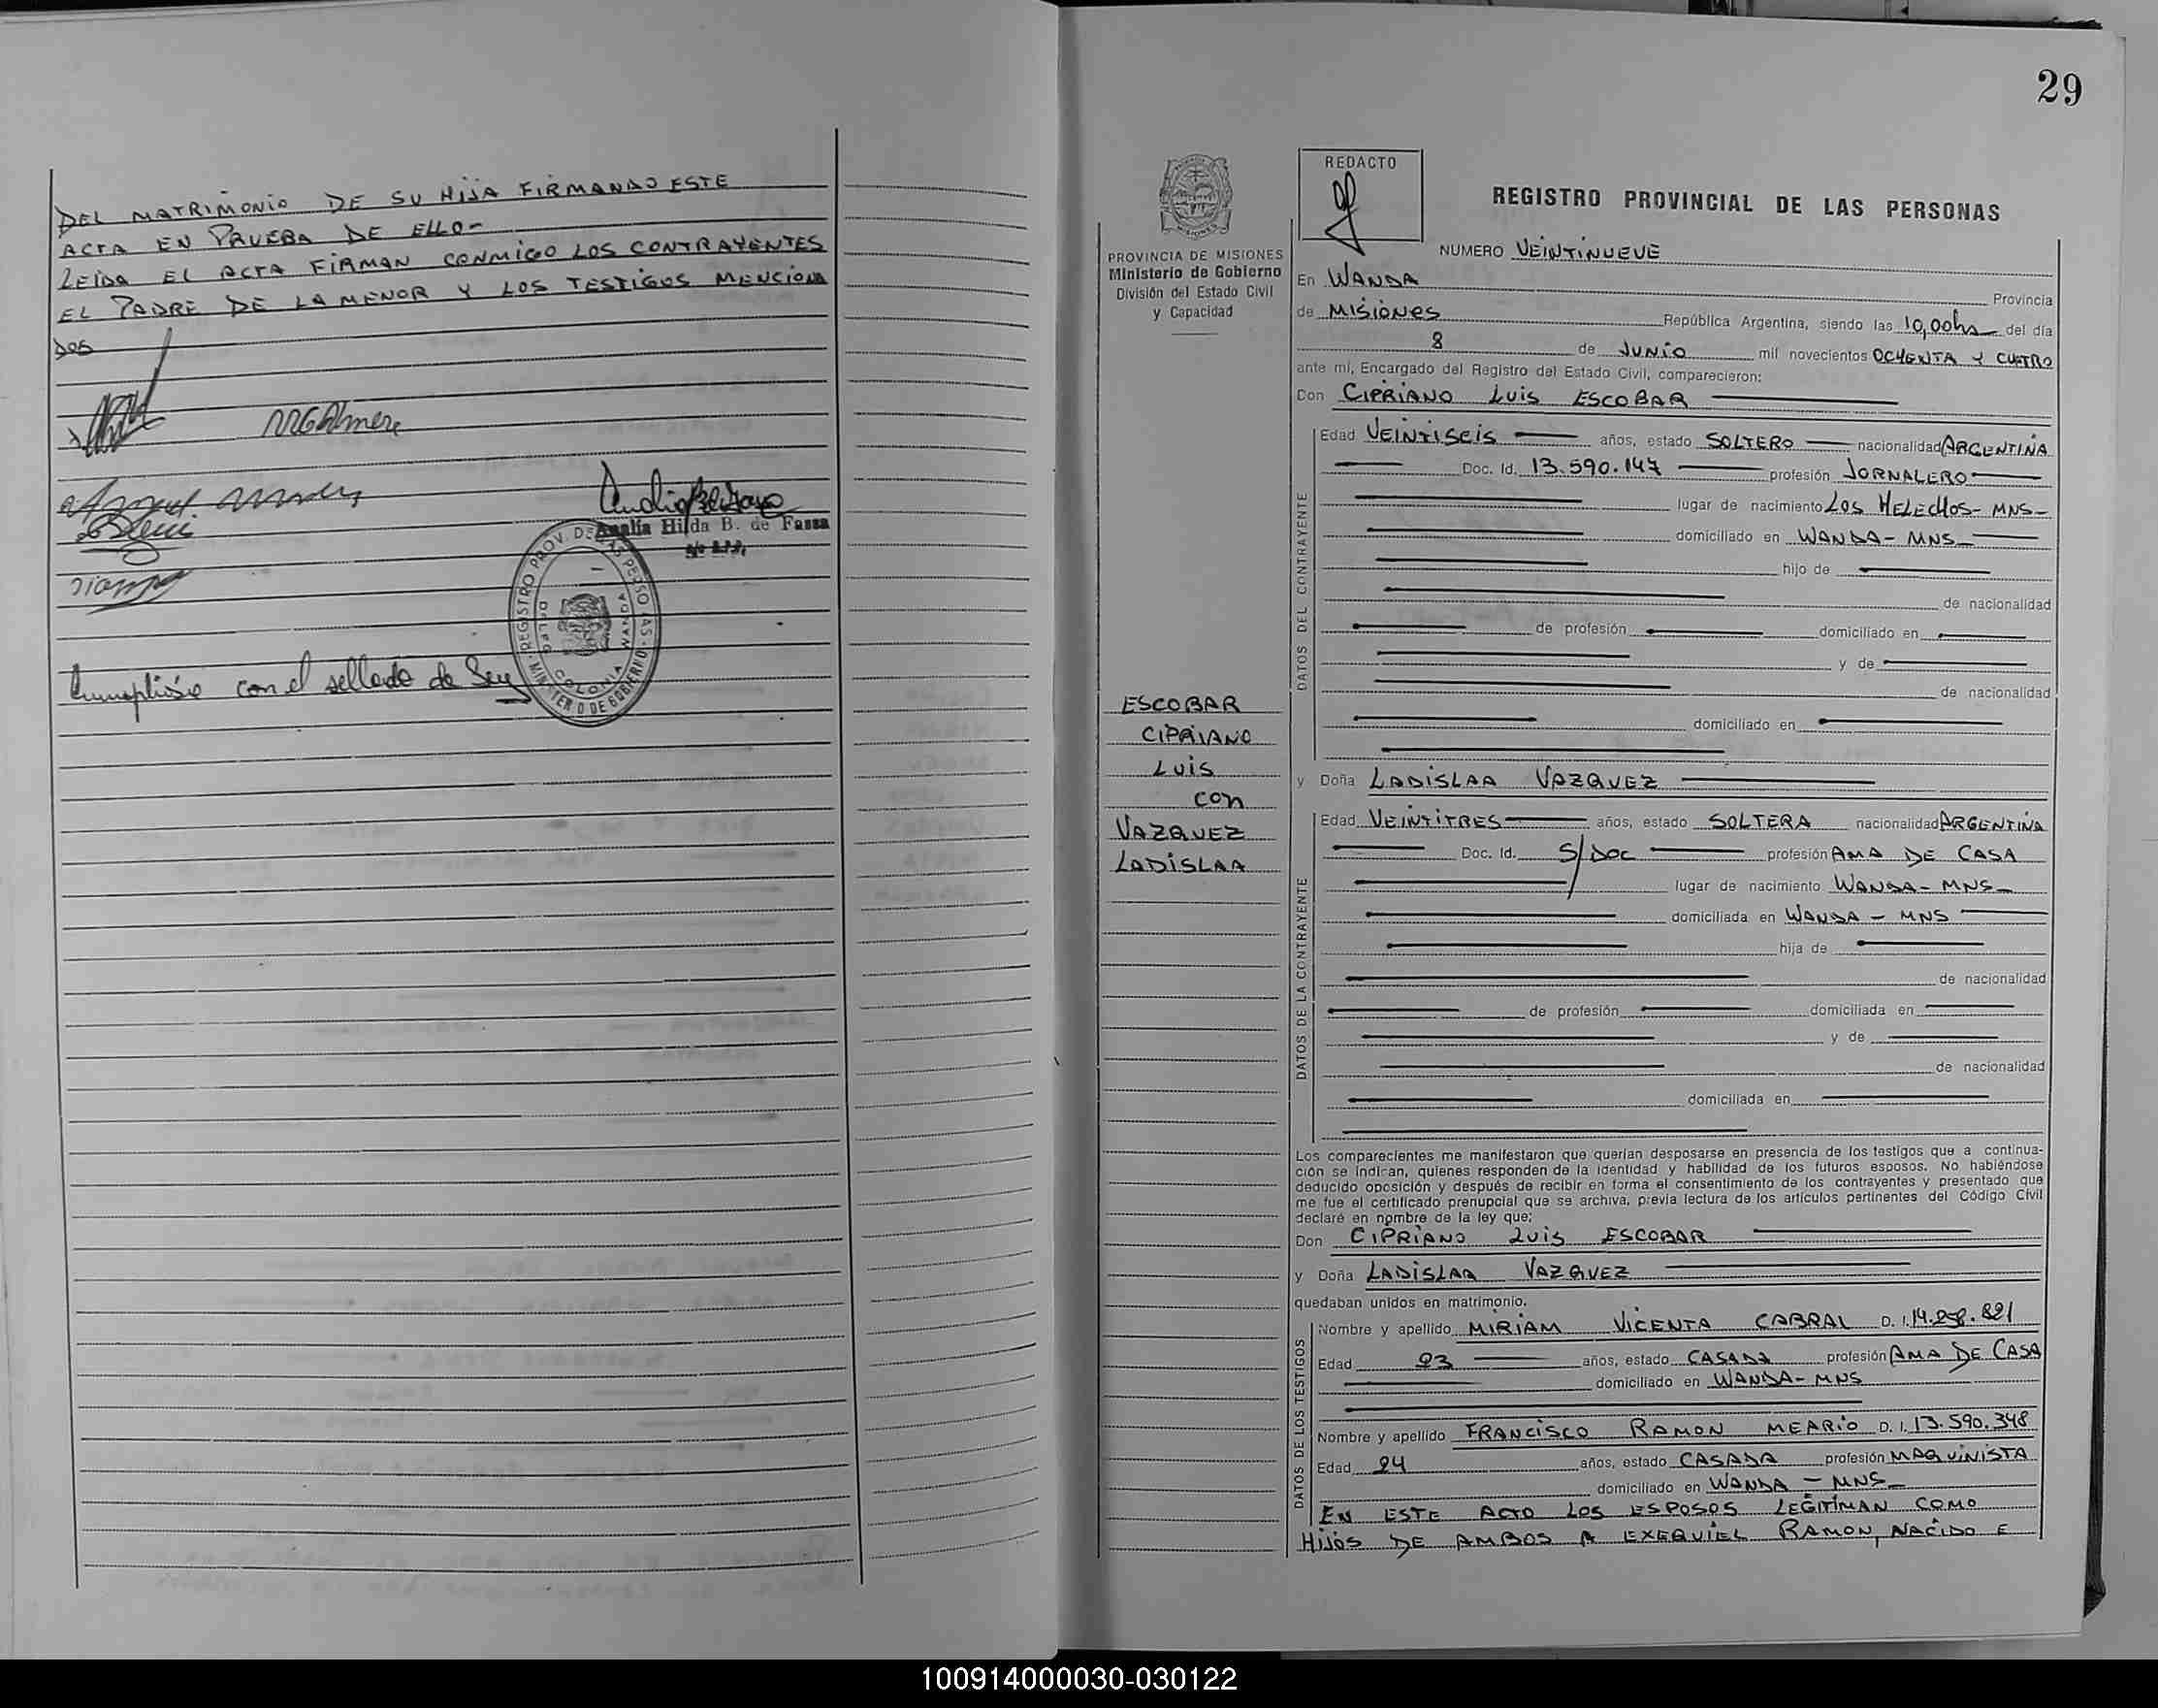 DEL MATRIMONIO DE SU HIJA FIRMANDO ESTE
ACTA EN PRUEBA DE ELLO-
LEIDA EL ACTA FIRMAN CONMIGO LOS CONTRAYENTES
EL PADRE DE LA MENOR Y LOS TESTIGOS MENCIONA
DOS
Amalia Hilda B. de Fassa
REGISTRO PROV. DE LAS PERSONAS
COLONIA WANDA
MINISTERIO DE GOBIERNO
Cumplióse con el sellado de Ley
29
PROVINCIA DE MISIONES
Ministerio de Gobierno
División del Estado Civil
y Capacidad
ESCOBAR
CIPRIANO
LUIS
CON
VAZQUEZ
LADISLAA
REDACTO
REGISTRO PROVINCIAL DE LAS PERSONAS
NUMERO VEINTINUEVE
En WANDA Provincia
de MISIONES República Argentina, siendo las 10,00hs del día
8 de JUNIO mil novecientos OCHENTA Y CUATRO
ante mí, Encargado del Registro del Estado Civil, comparecieron:
Don CIPRIANO LUIS ESCOBAR
DATOS DEL CONTRAYENTE
Edad VEINTISEIS años, estado SOLTERO nacionalidad ARGENTINA
Doc. Id. 13.590.147 profesión JORNALERO
lugar de nacimiento LOS HELECHOS- MNS-
domiciliado en WANDA- MNS-
hijo de
de nacionalidad
de profesión domiciliado en
y de
de nacionalidad
domiciliado en
y Doña LADISLAA VAZQUEZ
DATOS DE LA CONTRAYENTE
Edad VEINTITRES años, estado SOLTERA nacionalidad ARGENTINA
Doc. Id. S/DOC profesión AMA DE CASA
lugar de nacimiento WANDA- MNS-
domiciliada en WANDA - MNS
hija de
de nacionalidad
de profesión domiciliada en
y de
de nacionalidad
domiciliada en
Los comparecientes me manifestaron que querían desposarse en presencia de los testigos que a continua-
ción se indican, quienes responden de la identidad y habilidad de los futuros esposos. No habiéndose
deducido oposición y después de recibir en forma el consentimiento de los contrayentes y presentado que
me fue el certificado prenupcial que se archiva, previa lectura de los artículos pertinentes del Código Civil
declaré en nombre de la ley que:
Don CIPRIANO LUIS ESCOBAR
y Doña LADISLAA VAZQUEZ
quedaban unidos en matrimonio.
DATOS DE LOS TESTIGOS
Nombre y apellido MIRIAM VICENTA CABRAL D. I. 14.258.821
Edad 23 años, estado CASADA profesión AMA DE CASA
domiciliado en WANDA- MNS
Nombre y apellido FRANCISCO RAMON MEARIO D. I. 13.590.348
Edad 24 años, estado CASADA profesión MAQUINISTA
domiciliado en WANDA - MNS-
EN ESTE ACTO LOS ESPOSOS LEGITIMAN COMO
HIJOS DE AMBOS A EXEQUIEL RAMON, NACIDO E
100914000030-030122